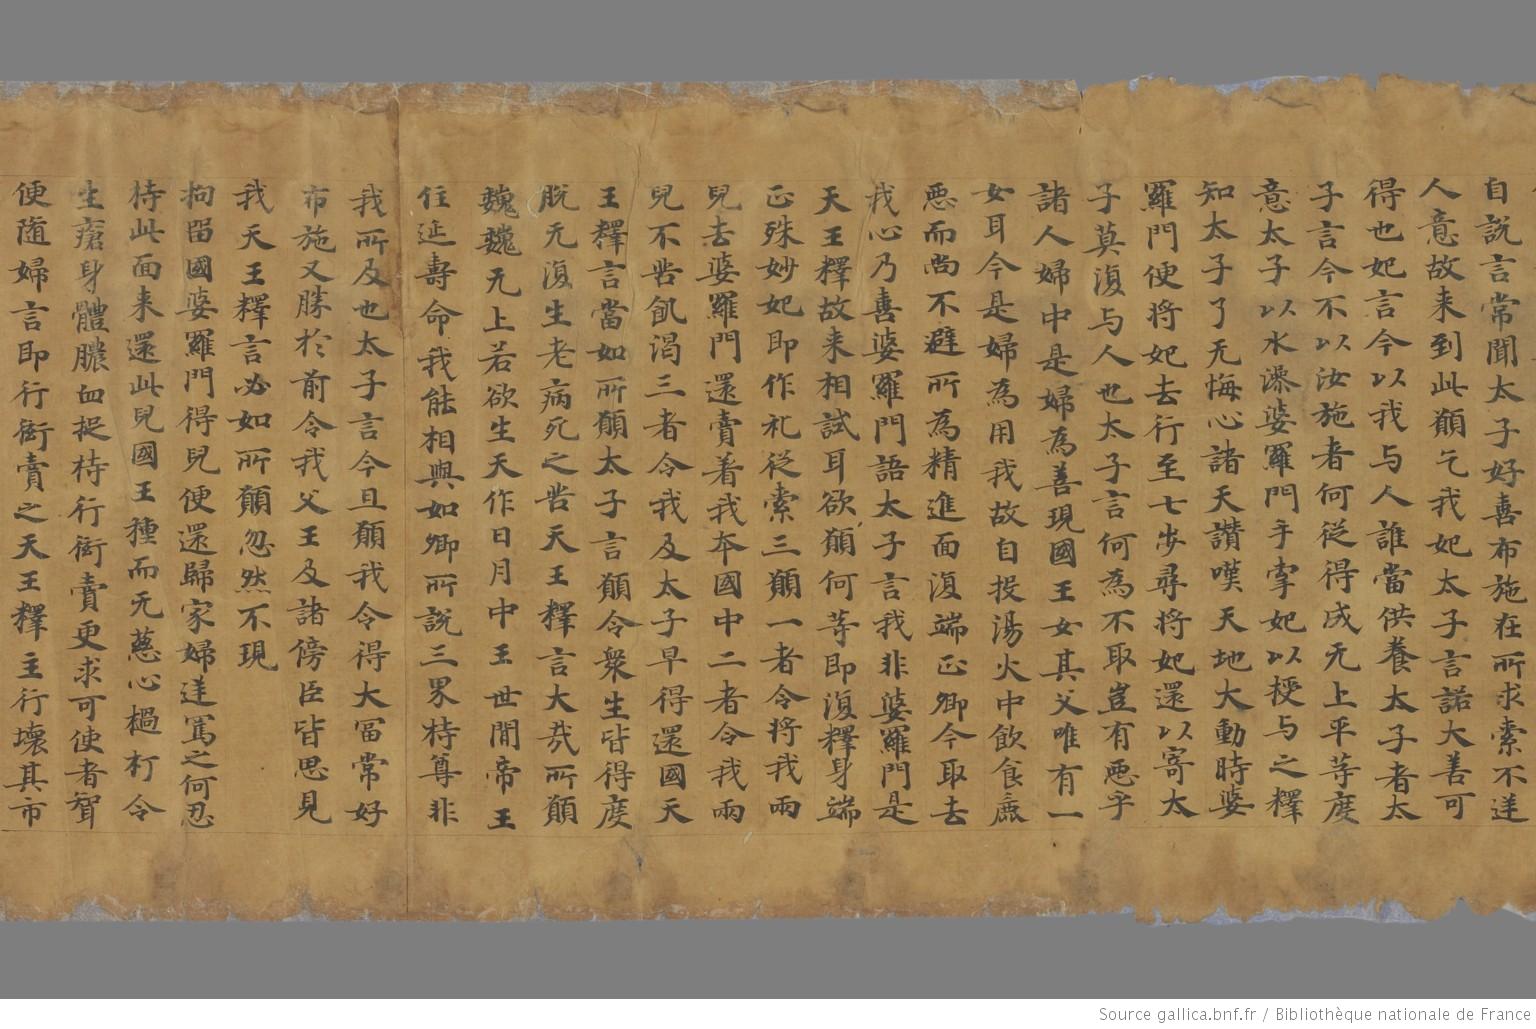 自説言常聞太子好善布施在所求索不逆
人意故来到此願乞我妃太子言諾大善可
得也妃言今以我与人誰當供養太子者太
子言今不以汝施者何從得成无上平等度
意太子以水澡婆羅門手牽妃以授与之釋
知太子了无悔心諸天讃嘆天地大動時婆
羅門便将妃去行至七步尋将妃還以寄太
子莫復与人也太子言何為不取豈有惡乎
諸人婦中是婦為善現國王女其父唯有一
女耳今是婦為用我故自投湯火中飲食麁
惡而尚不避所為精進面復端正卿今取去
我心乃善婆羅門語太子言我非婆羅門是
天王釋故来相試耳欲願何等即復釋身端
正殊妙妃即作礼從索三願一者令将我兩
兒去婆羅門還賣着我夲國中二者令我兩
兒不苦飢渴三者令我及太子早得還國天
王釋言當如所願太子言願令衆生皆得度
脱无復生老病死之苦天王釋言大㢤所願
巍巍无上若欲生天作日月中王世間帝王
住延壽命我能相與如卿所説三界特尊非
我所及也太子言今且願我令得大冨常好
布施又勝於前令我父王及諸傍臣皆思見
我天王釋言必如所願忽然不現
拘留國婆羅門得兒便還歸家婦逆罵之何忍
持此面来還此兒國王種而无慈心檛打令
生瘡身體膿血捉持行衒賣更求可使者聟
便随婦言即行衒賣之天王釋主行壞其市
Source gallica.bnf.fr / Bibliothèque nationale de France